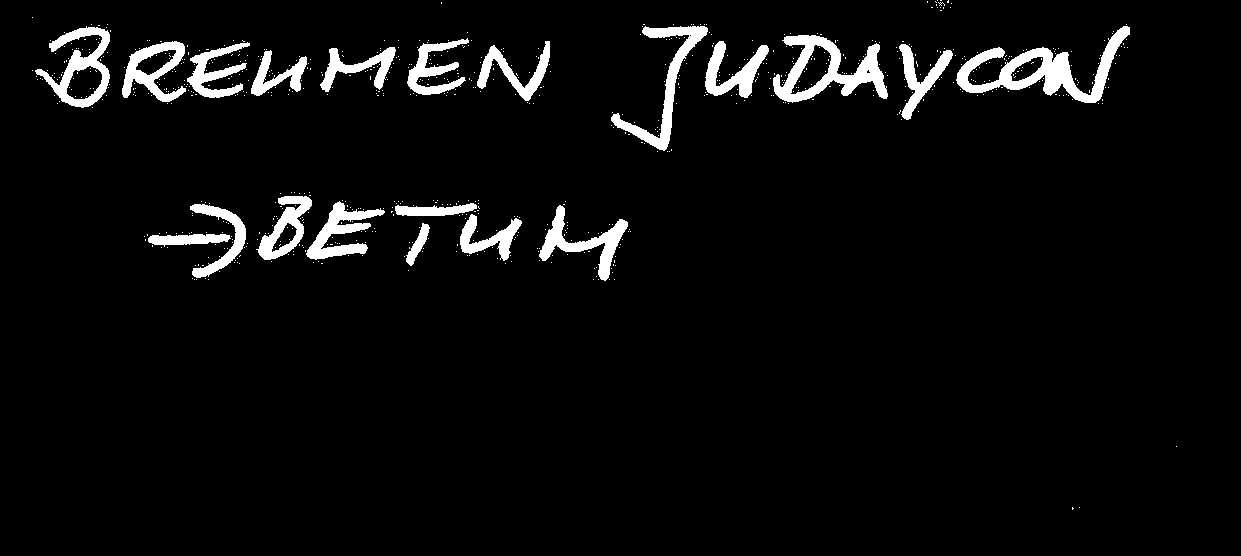 BREUMEN JUDAYCON
→ BETUM